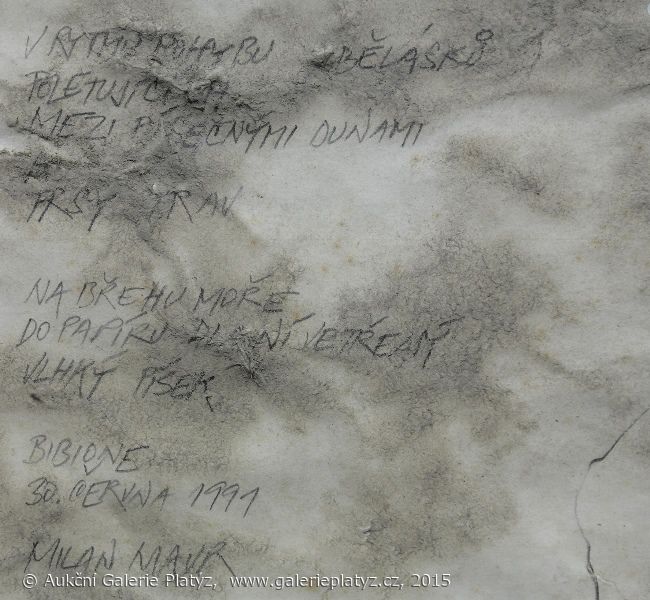 V RYTMU POHYBU BĚLÁSKŮ
POLETUJÍCÍCH
MEZI PÍSEČNÝMI DUNAMI
A
TRSY TRAV
NA BŘEHU MOŘE
DO PAPÍRU DLANÍ VETŘENÝ
VLHKÝ PÍSEK
BIBIONE
30. ČERVNA 1991
MILAN MAUR
© Aukční Galerie Platýz, www.galerieplatyz.cz, 2015